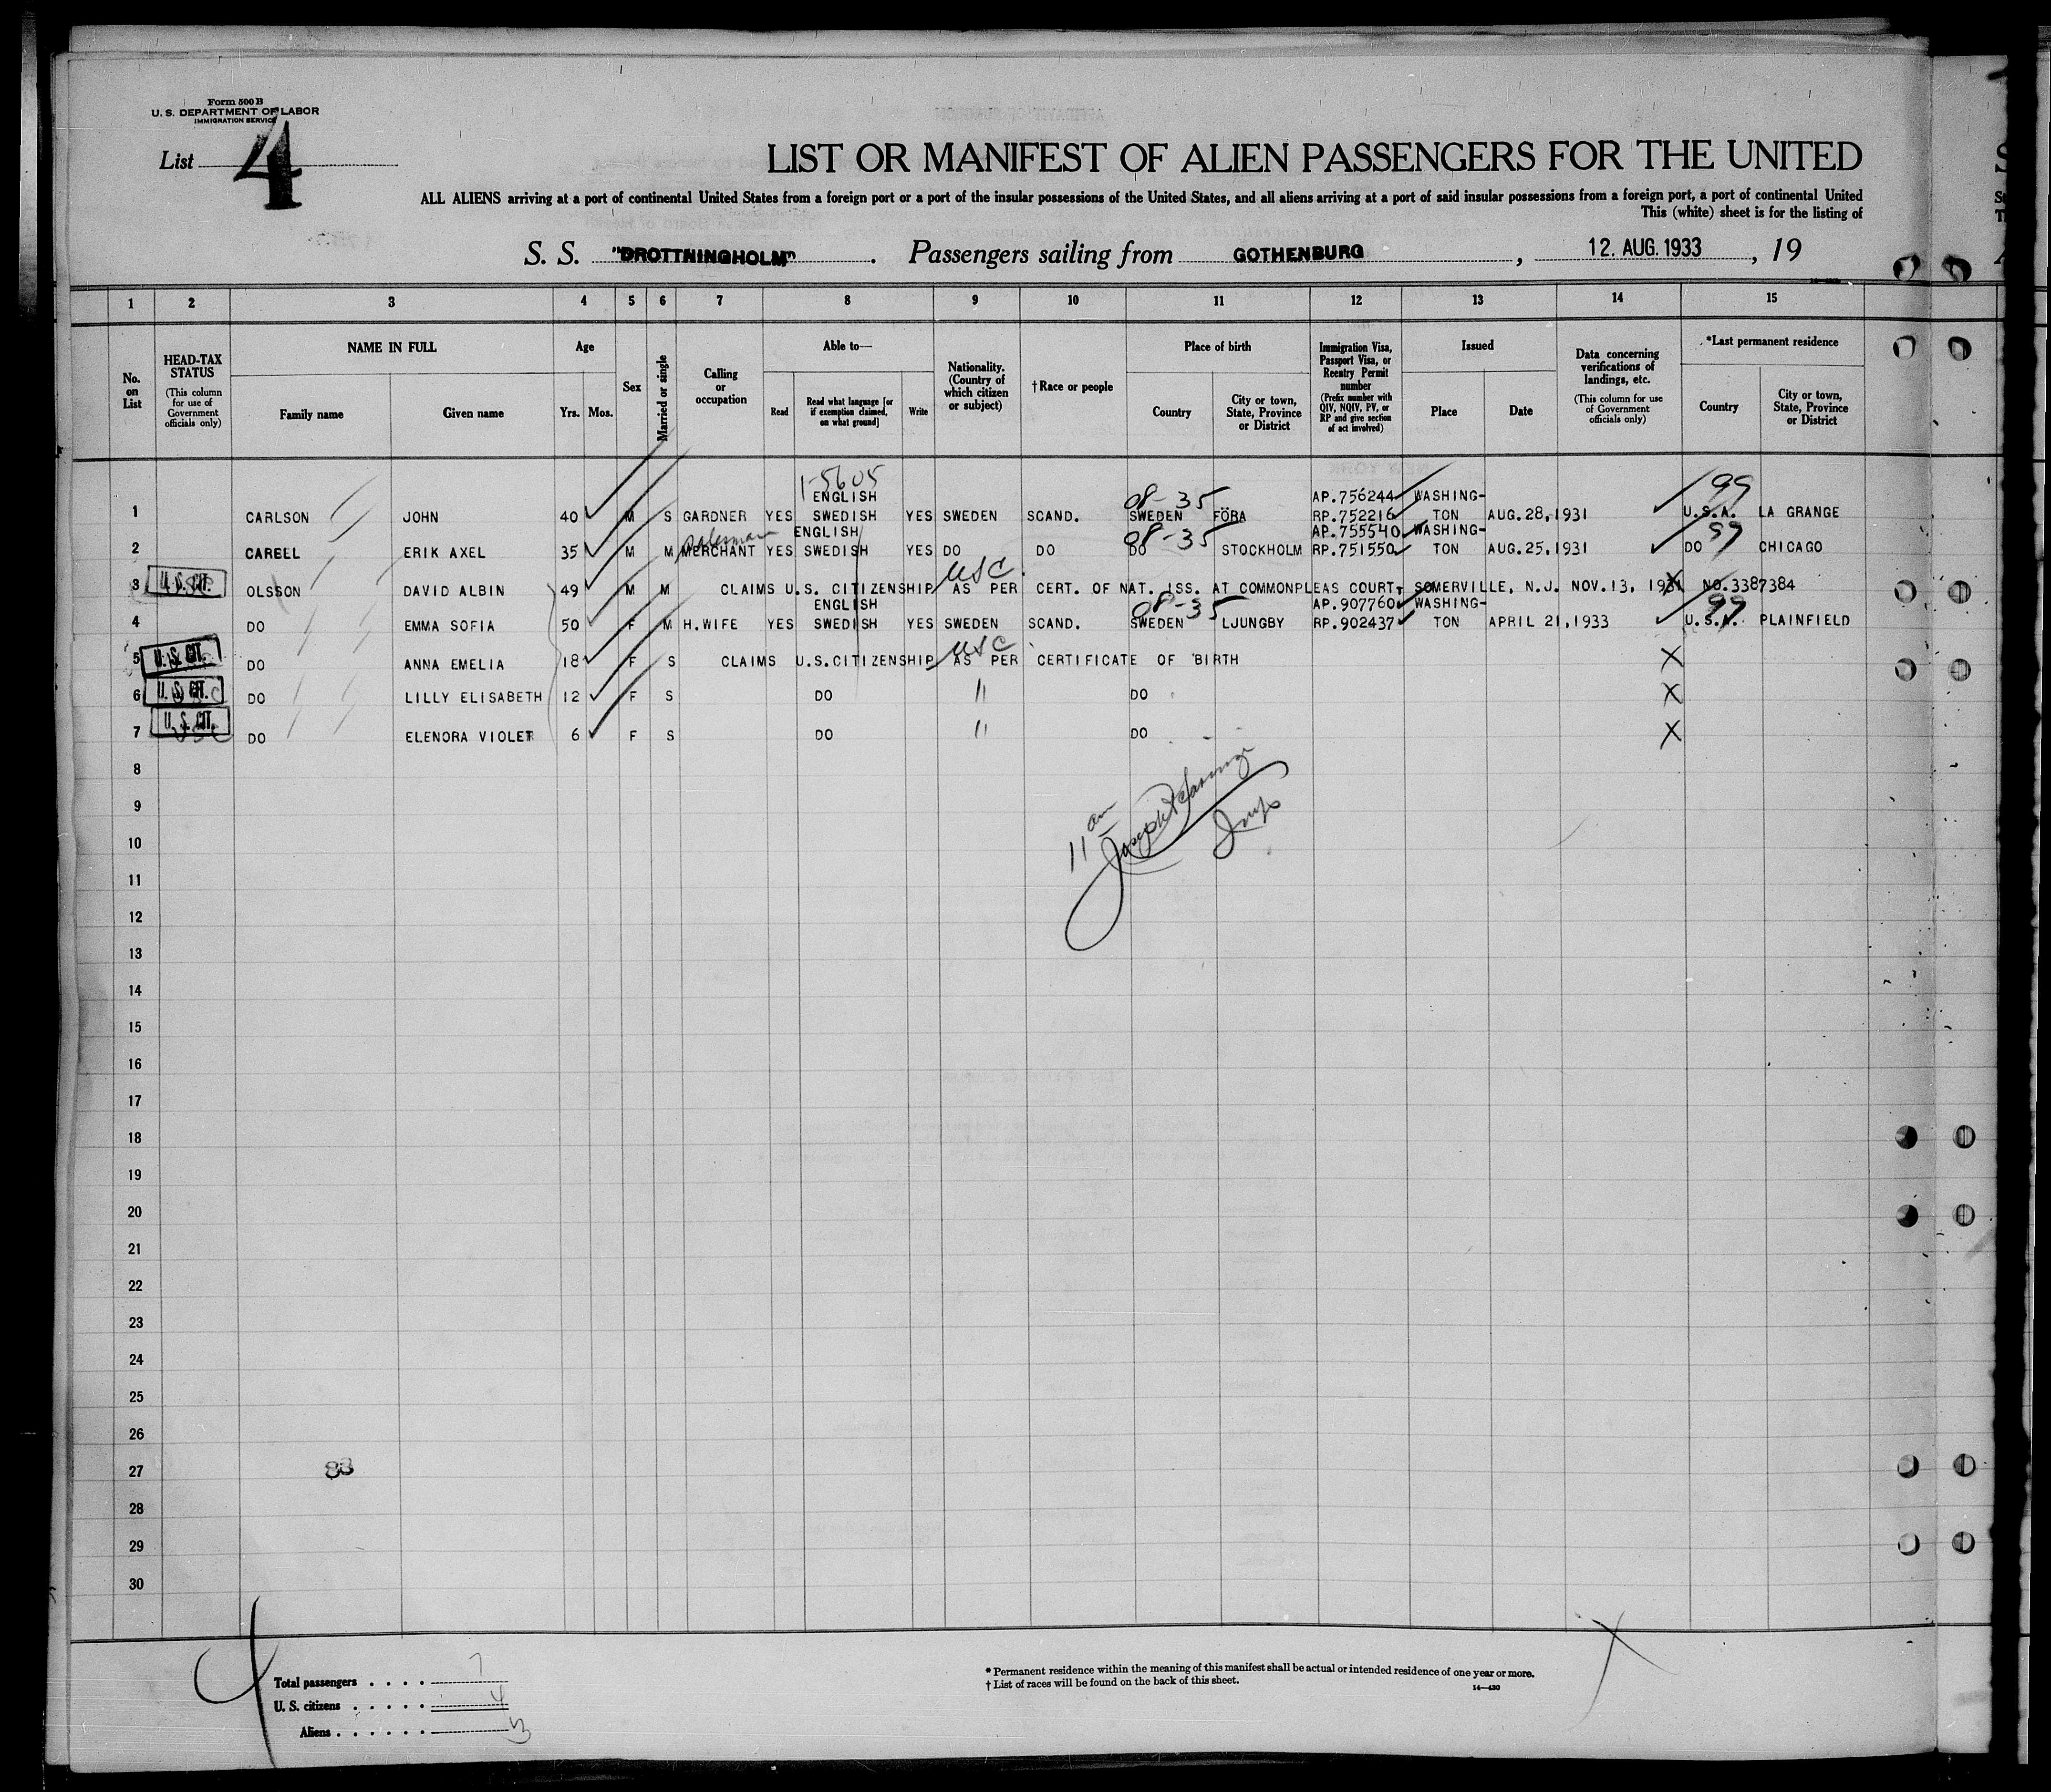 Form 500 B
U. S. DEPARTMENT OF LABOR
IMMIGRATION SERVICE
List 4
LIST OR MANIFEST OF ALIEN PASSENGERS FOR THE UNITED
ALL ALIENS arriving at a port of continental United States from a foreign port or a port of the insular possessions of the United States, and all aliens arriving at a port of said insular possessions from a foreign port, a port of continental United
This (white) sheet is for the listing of
S. S. "DROTTNINGHOLM". Passengers sailing from GOTHENBURG, 12. AUG. 1933, 19
1 2 3 4 5 6 7 8 9 10 11 12 13 14 15
No. on List
HEAD-TAX STATUS (This column for use of Government officials only)
NAME IN FULL
Family name
Given name
Age
Yrs. Mos.
Sex
Married or single
Calling or occupation
Able to—
Read
Read what language [or if exemption claimed, on what ground]
Write
Nationality. (Country of which citizen or subject)
† Race or people
Place of birth
Country
City or town, State, Province or District
Immigration Visa, Passport Visa, or Reentry Permit number (Prefix number with QIV, NQIV, PV, or RP and give section of act involved)
Issued
Place
Date
Data concerning verifications of landings, etc. (This column for use of Government officials only)
*Last permanent residence
Country
City or town, State, Province or District
1-5605
ENGLISH 08-35 AP.756244 WASHING- 99
1 CARLSON JOHN 40 M S GARDNER YES SWEDISH YES SWEDEN SCAND. SWEDEN FÖRA RP.752216 TON AUG.28,1931 U.S.A. LA GRANGE
salesman ENGLISH 08-35 AP.755540 WASHING- 99
2 CARELL ERIK AXEL 35 M M MERCHANT YES SWEDISH YES DO DO DO STOCKHOLM RP.751550 TON AUG.25,1931 DO CHICAGO
USC
3 U.S. CIT. OLSSON DAVID ALBIN 49 M M CLAIMS U.S. CITIZENSHIP AS PER CERT. OF NAT. ISS. AT COMMONPLEAS COURT, SOMERVILLE, N.J. NOV.13, 1931 X NO.3387384
ENGLISH 08-35 AP.907760 WASHING- 99
4 DO EMMA SOFIA 50 F M H.WIFE YES SWEDISH YES SWEDEN SCAND. SWEDEN LJUNGBY RP.902437 TON APRIL 21,1933 U.S.A. PLAINFIELD
USC
5 U.S. CIT. DO ANNA EMELIA 18 F S CLAIMS U.S.CITIZENSHIP AS PER CERTIFICATE OF BIRTH X
6 U.S. CIT. DO LILLY ELISABETH 12 F S DO " DO X
7 U.S. CIT. DO ELENORA VIOLET 6 F S DO " DO X
8
9
11 am
Insp
10
11
12
13
14
15
16
17
18
19
20
21
22
23
24
25
26
27 83
28
29
30
Total passengers . . . . 7
U. S. citizens . . . . . 4
Aliens . . . . . . 3
* Permanent residence within the meaning of this manifest shall be actual or intended residence of one year or more.
† List of races will be found on the back of this sheet.
14—430